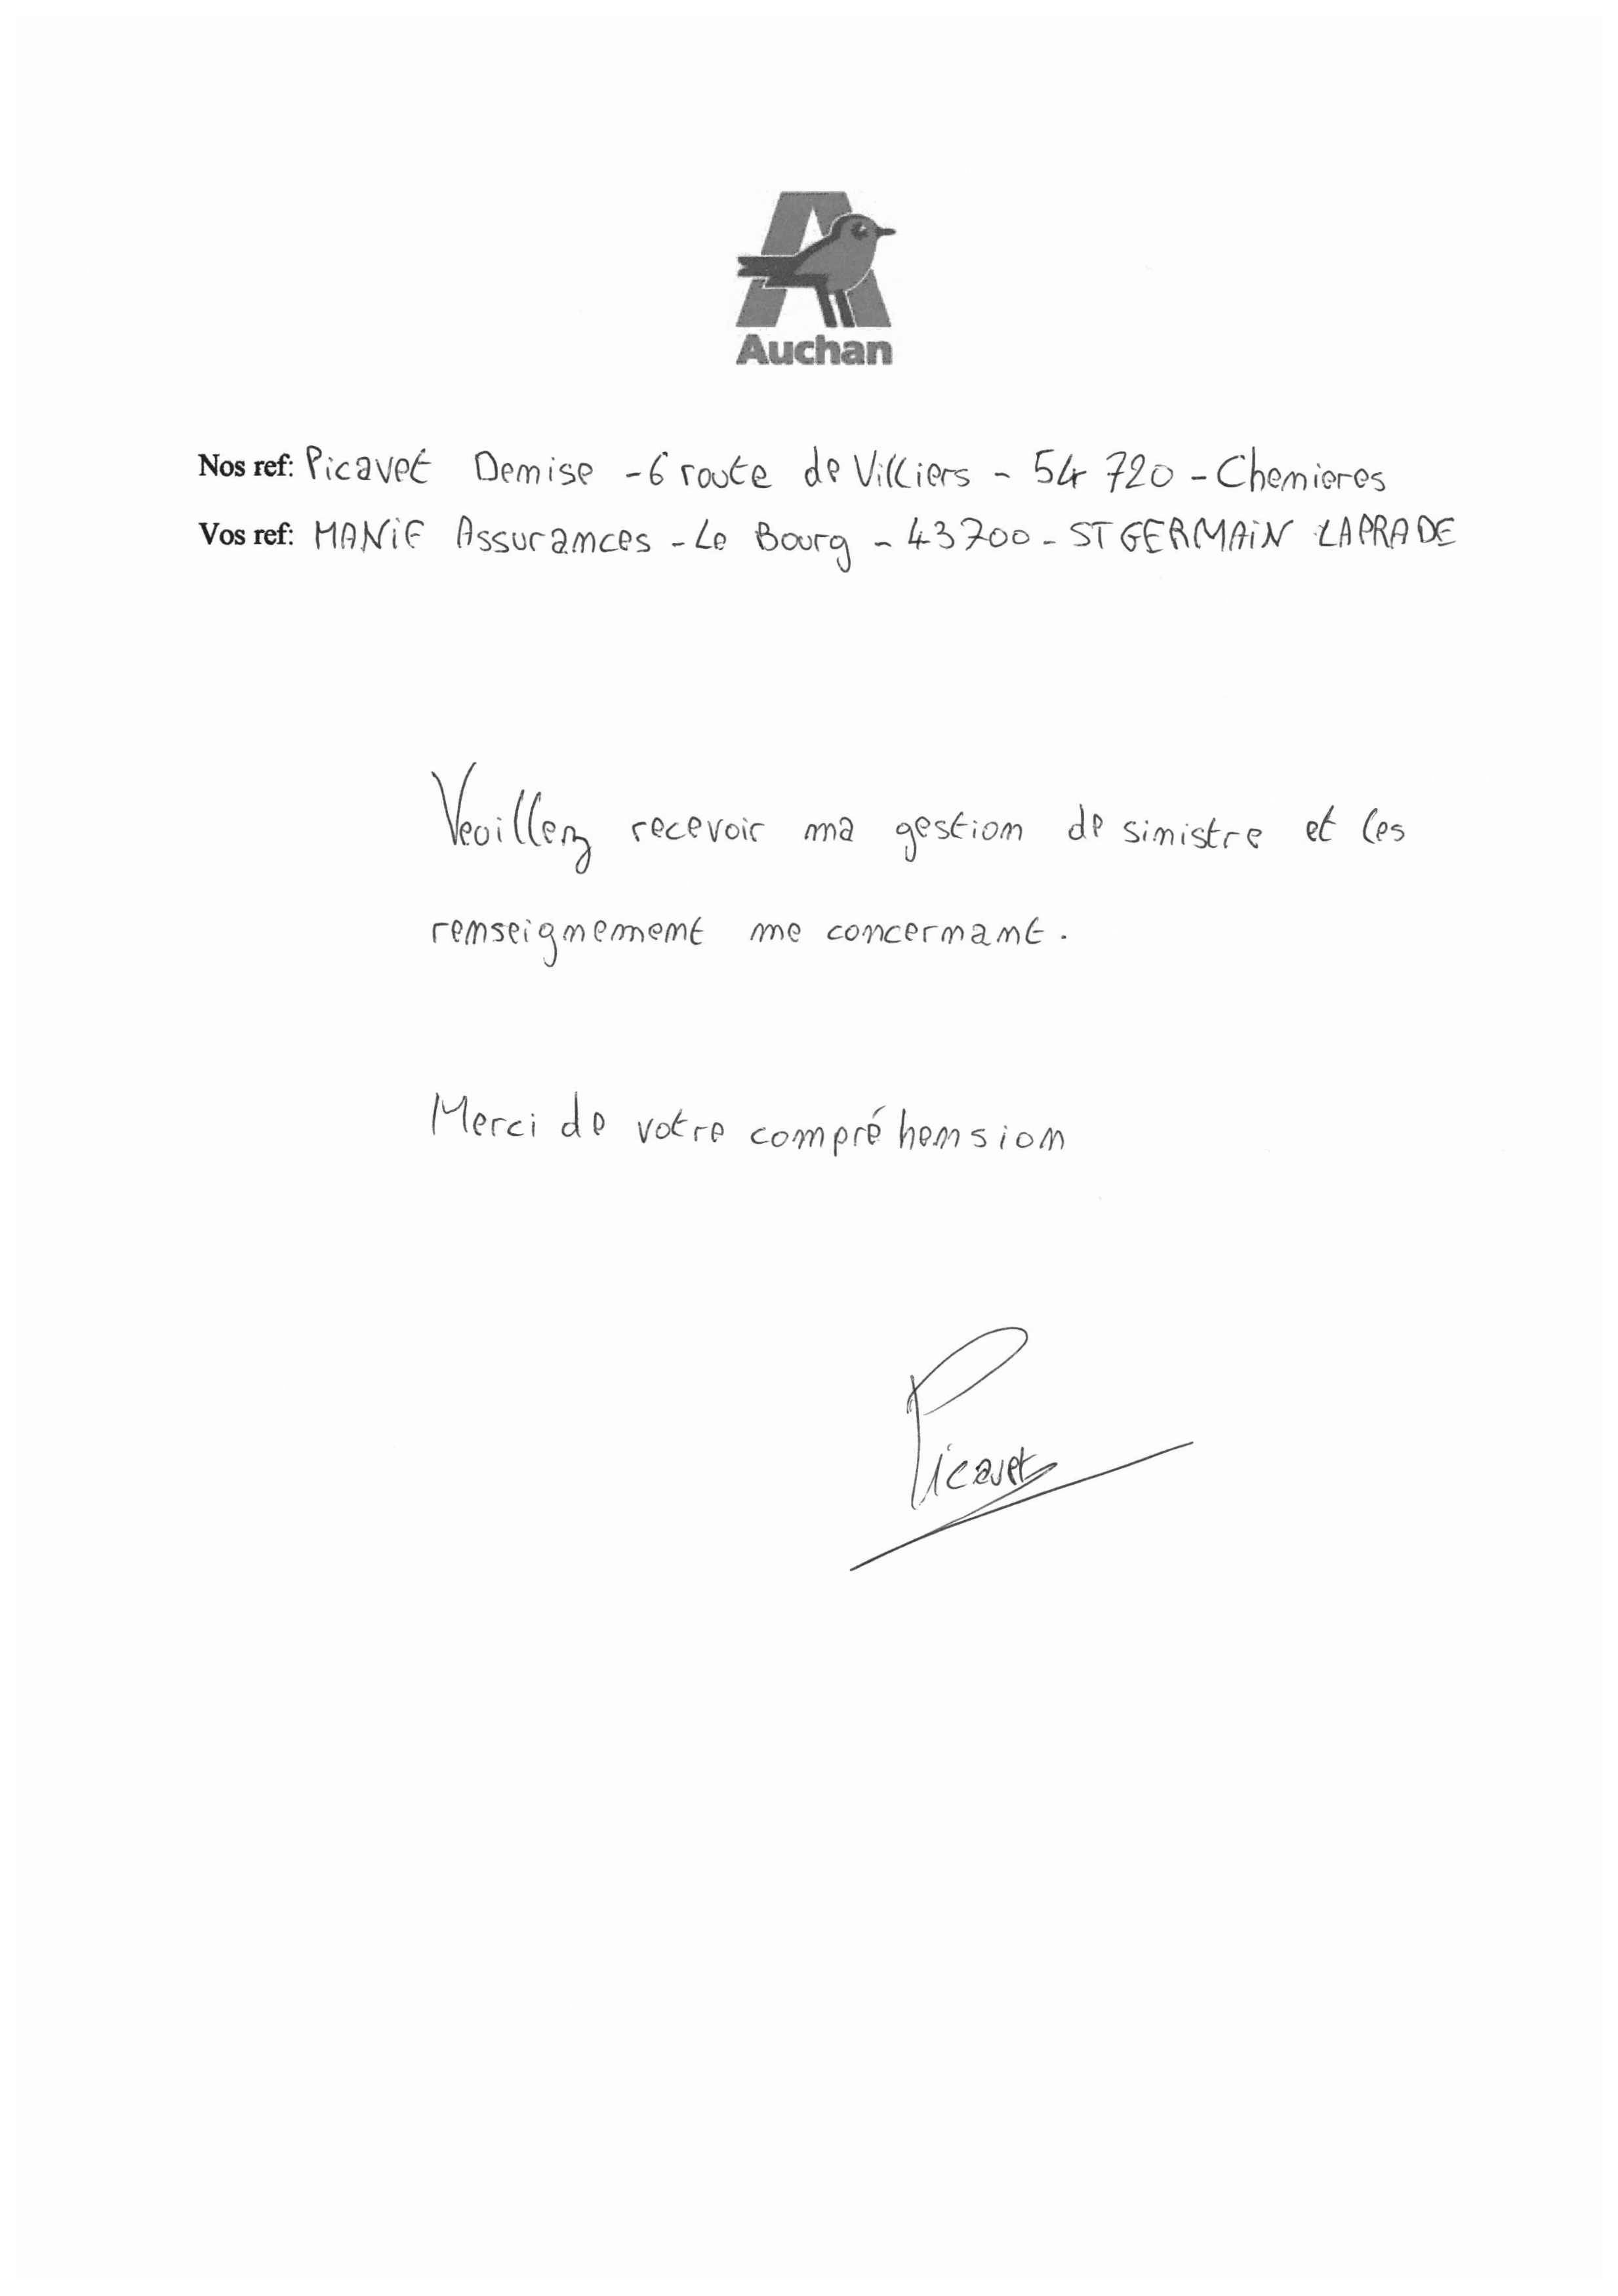 Auchan
Nos ref: Picavet Denise - 6 route de Villiers - 54 720 - Chenieres
Vos ref: MANIF Assurances - Le Bourg - 43700 - ST GERMAIN LAPRADE
Veuillez recevoir ma gestion de sinistre et les
renseignement me concernant.
Merci de votre compréhension
Picavet